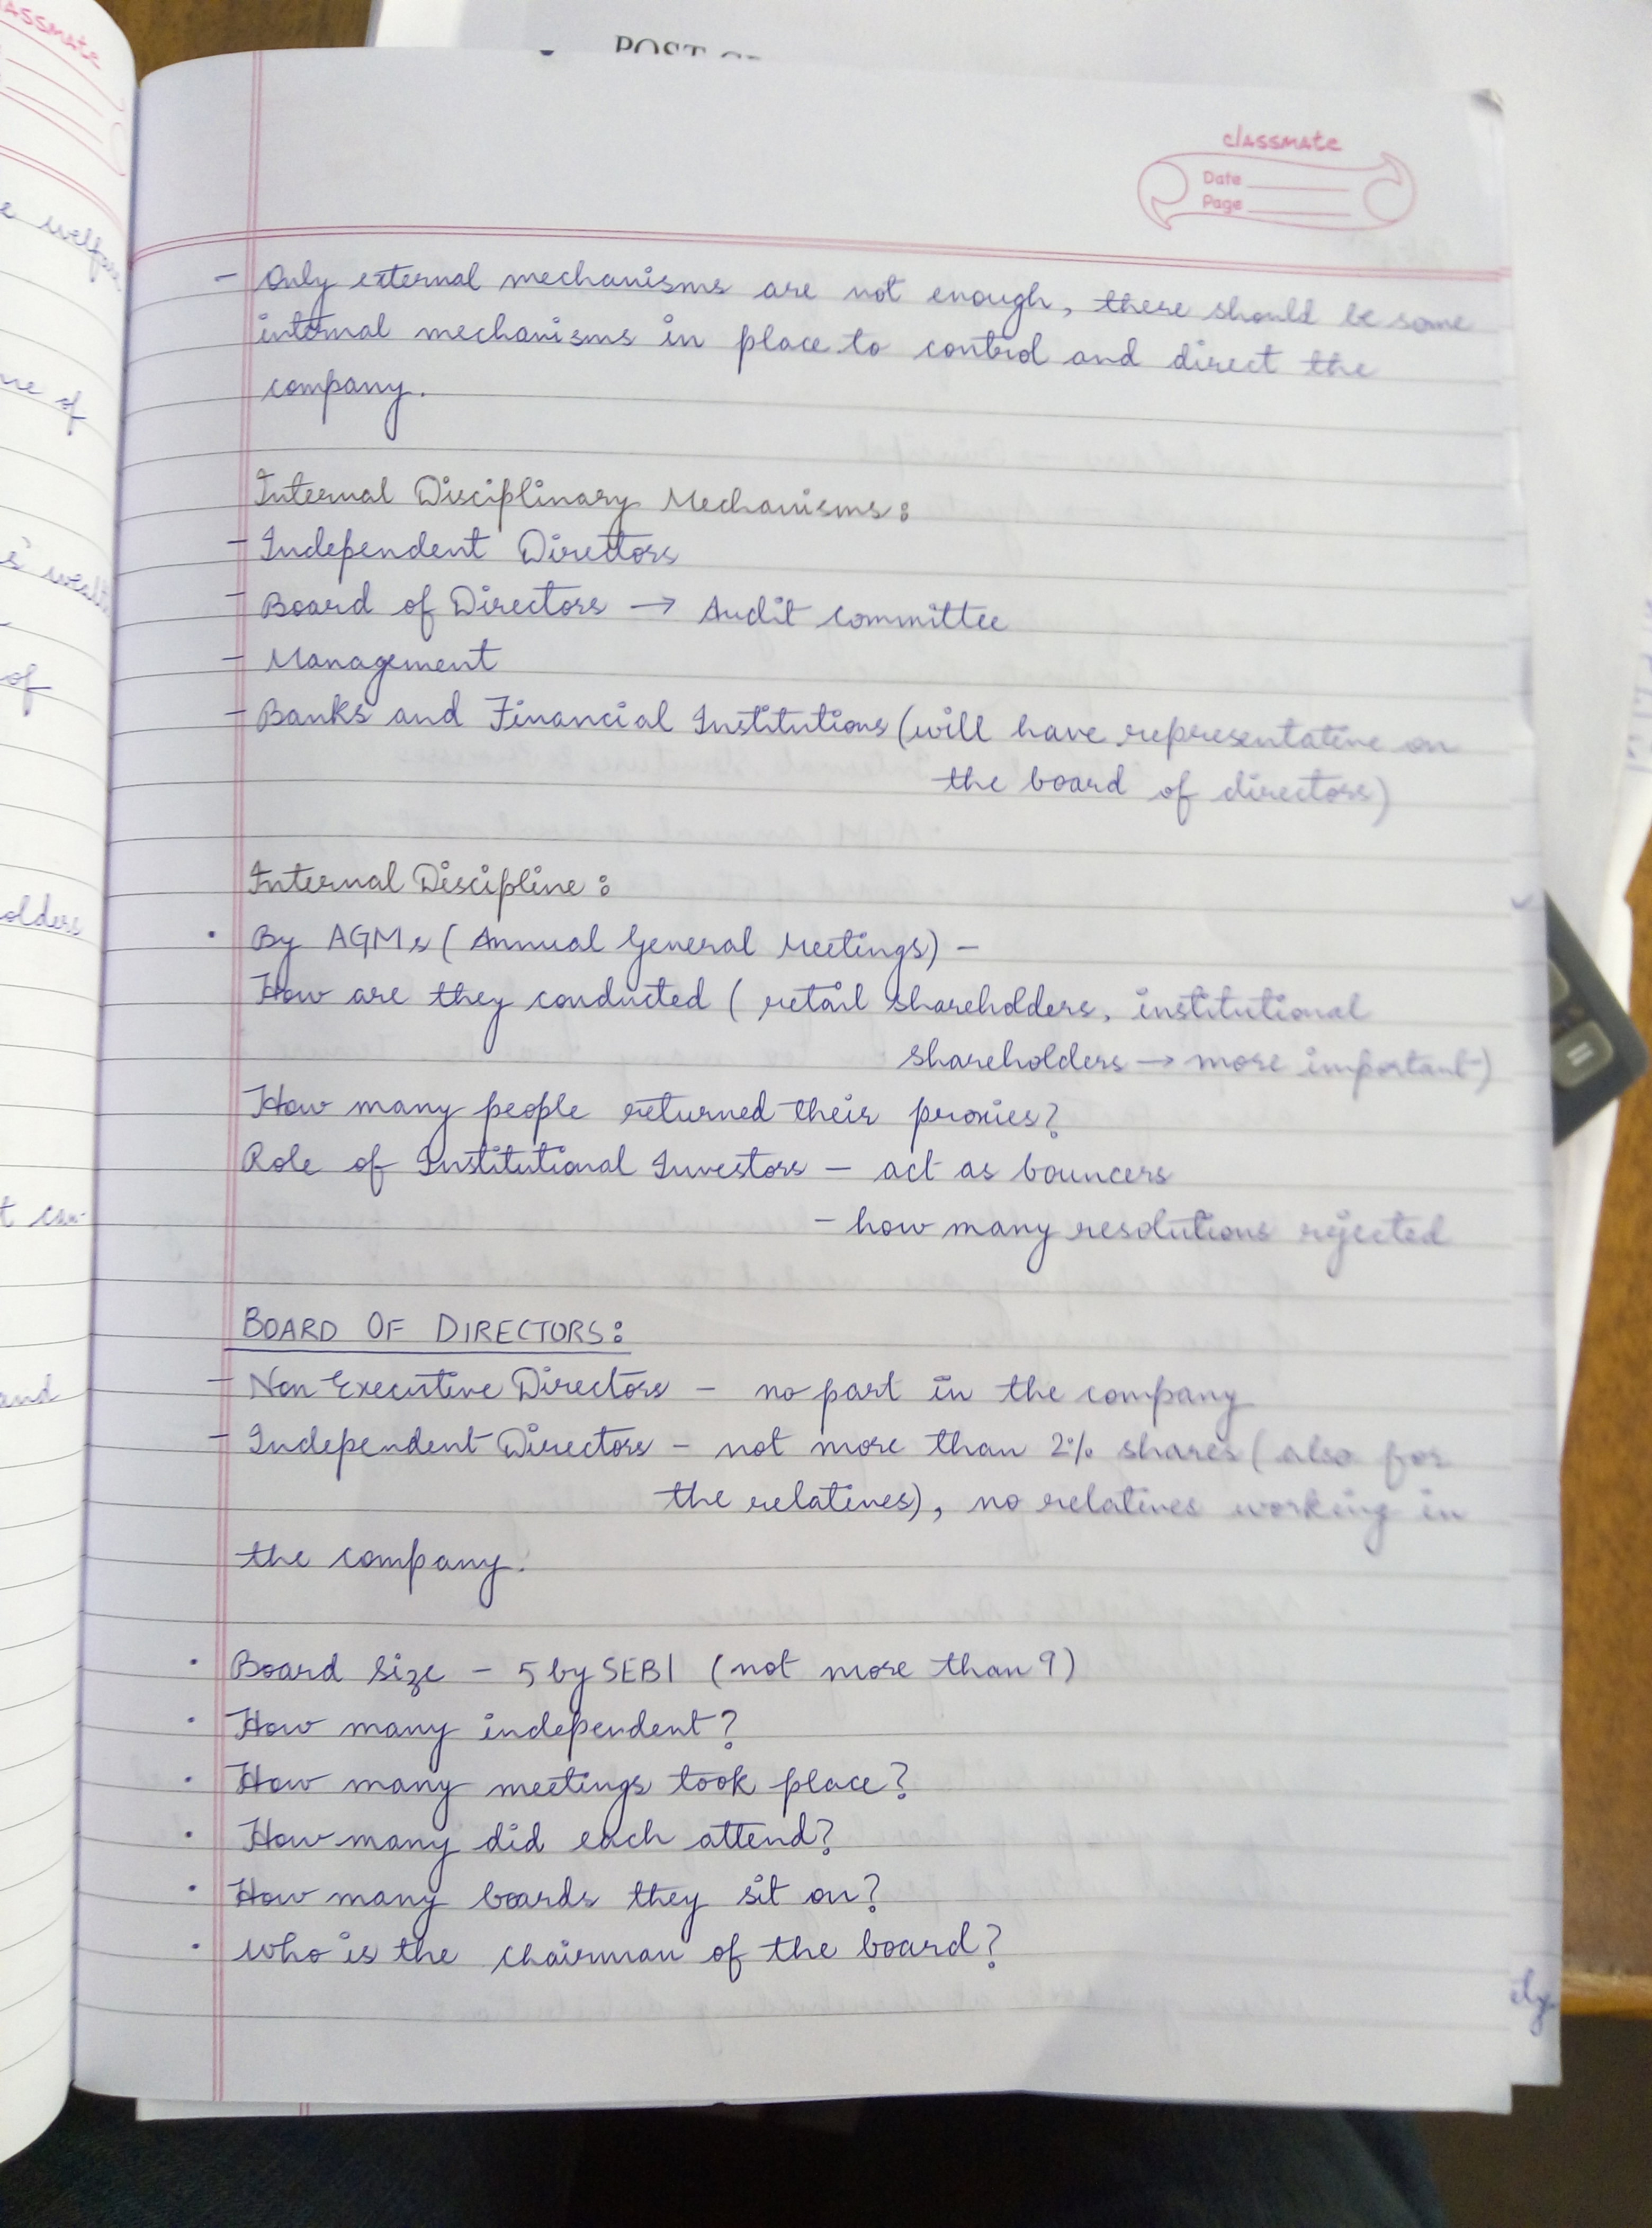 POST
classmate
Date
Page
- Only external mechanisms are not enough, there should be some
internal mechanisms in place to control and direct the
company.
Internal Disciplinary Mechanisms:
- Independent Directors
- Board of Directors → Audit committee
- Management
- Banks and Financial Institutions (will have representative on
the board of directors)
Internal Discipline:
• By AGMs (Annual General Meetings) -
How are they conducted ( retail shareholders, institutional
shareholders → more important)
How many people returned their proxies?
Role of Institutional Investors - act as bouncers
- how many resolutions rejected
BOARD OF DIRECTORS:
- Non Executive Directors - no part in the company
- Independent Directors - not more than 2% shares (also for
the relatives), no relatives working in
the company.
• Board Size - 5 by SEBI (not more than 9)
• How many independent?
• How many meetings took place?
• How many did each attend?
• How many boards they sit on?
• Who is the chairman of the board?
classmate
of
of
and